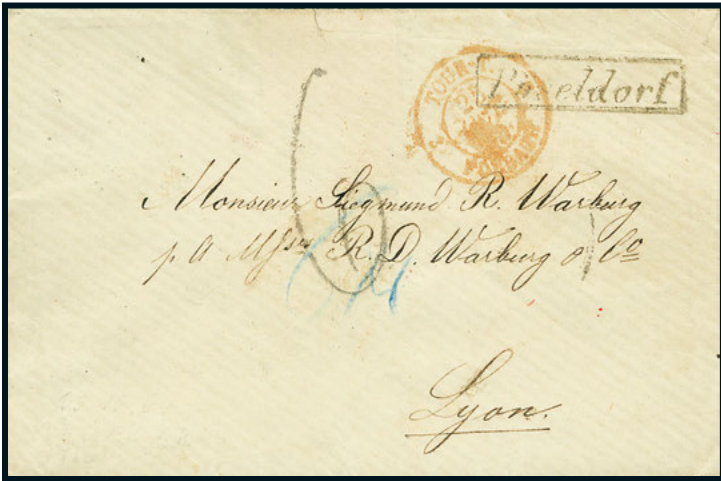 TOUR-T.
FORBACH
Pöseldorf
Monsieur Siegmund R. Warburg
p A Mssrs R. D. Warburg & Co
Lyon.